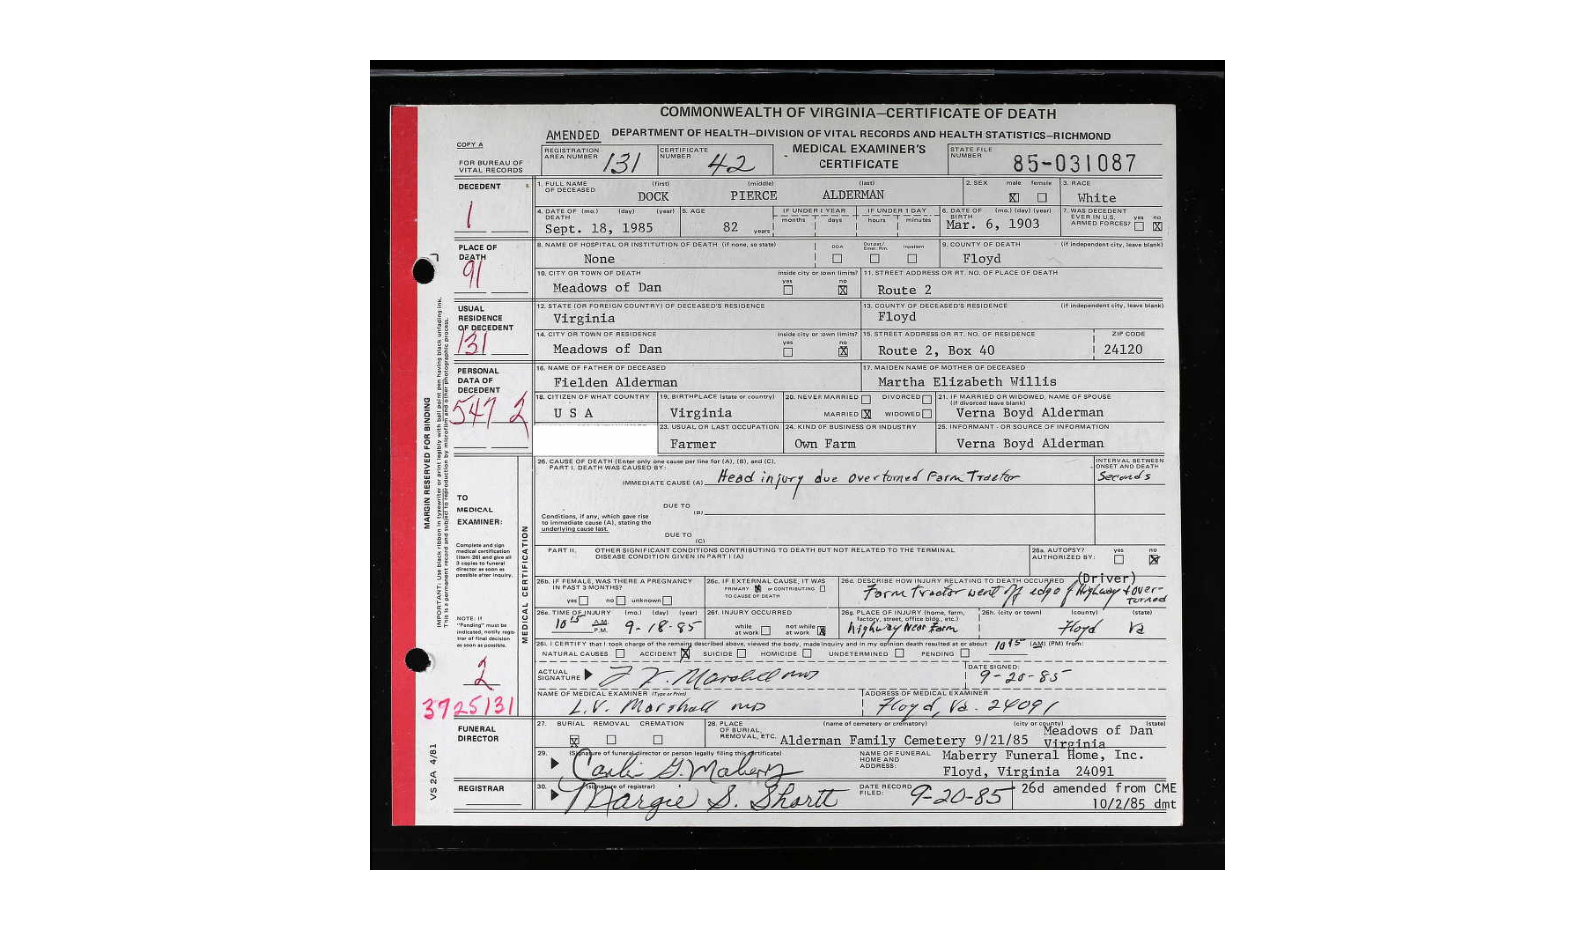 COMMONWEALTH OF VIRGINIA—CERTIFICATE OF DEATH
AMENDED DEPARTMENT OF HEALTH—DIVISION OF VITAL RECORDS AND HEALTH STATISTICS—RICHMOND
COPY A
FOR BUREAU OF VITAL RECORDS
REGISTRATION AREA NUMBER 131
CERTIFICATE NUMBER 42
MEDICAL EXAMINER'S CERTIFICATE
STATE FILE NUMBER 85-031087
DECEDENT
1
1. FULL NAME OF DECEASED (first) (middle) (last)
DOCK PIERCE ALDERMAN
2. SEX male female
X
3. RACE
White
4. DATE OF DEATH (mo.) (day) (year)
Sept. 18, 1985
5. AGE
82 years
IF UNDER 1 YEAR
months days
IF UNDER 1 DAY
hours minutes
6. DATE OF BIRTH (mo.) (day) (year)
Mar. 6, 1903
7. WAS DECEDENT EVER IN U.S. ARMED FORCES? yes no
X
PLACE OF DEATH
91
8. NAME OF HOSPITAL OR INSTITUTION OF DEATH (if none, so state)
None
DOA Inpatient
9. COUNTY OF DEATH (if independent city, leave blank)
Floyd
10. CITY OR TOWN OF DEATH
Meadows of Dan
inside city or town limits? yes no
X
11. STREET ADDRESS OR RT. NO. OF PLACE OF DEATH
Route 2
USUAL RESIDENCE OF DECEDENT
131
12. STATE (OR FOREIGN COUNTRY) OF DECEASED'S RESIDENCE
Virginia
13. COUNTY OF DECEASED'S RESIDENCE (if independent city, leave blank)
Floyd
14. CITY OR TOWN OF RESIDENCE
Meadows of Dan
inside city or town limits? yes no
X
15. STREET ADDRESS OR RT. NO. OF RESIDENCE
Route 2, Box 40
ZIP CODE
24120
PERSONAL DATA OF DECEDENT
547 2
16. NAME OF FATHER OF DECEASED
Fielden Alderman
17. MAIDEN NAME OF MOTHER OF DECEASED
Martha Elizabeth Willis
18. CITIZEN OF WHAT COUNTRY
U S A
19. BIRTHPLACE (state or country)
Virginia
20. NEVER MARRIED DIVORCED
MARRIED X WIDOWED
21. IF MARRIED OR WIDOWED, NAME OF SPOUSE
(if divorced leave blank)
Verna Boyd Alderman
23. USUAL OR LAST OCCUPATION
Farmer
24. KIND OF BUSINESS OR INDUSTRY
Own Farm
25. INFORMANT - OR SOURCE OF INFORMATION
Verna Boyd Alderman
MARGIN RESERVED FOR BINDING
MEDICAL CERTIFICATION
TO MEDICAL EXAMINER:
Complete and sign medical certification (item 26) and give all 3 copies to funeral director as soon as possible after inquiry.
NOTE: If "Pending" must be indicated, notify registrar of final decision as soon as possible.
2
3725131
26. CAUSE OF DEATH (Enter only one cause per line for (A), (B), and (C).
PART I. DEATH WAS CAUSED BY:
IMMEDIATE CAUSE (A) Head injury due overturned Farm Tractor
INTERVAL BETWEEN ONSET AND DEATH
Seconds
DUE TO (B)
Conditions, if any, which gave rise to immediate cause (A), stating the underlying cause last.
DUE TO (C)
PART II. OTHER SIGNIFICANT CONDITIONS CONTRIBUTING TO DEATH BUT NOT RELATED TO THE TERMINAL DISEASE CONDITION GIVEN IN PART I (A)
26a. AUTOPSY? AUTHORIZED BY: yes no
X
26b. IF FEMALE, WAS THERE A PREGNANCY IN PAST 3 MONTHS?
yes no unknown
26c. IF EXTERNAL CAUSE, IT WAS
PRIMARY X or CONTRIBUTING
TO CAUSE OF DEATH
26d. DESCRIBE HOW INJURY RELATING TO DEATH OCCURRED (Driver)
Farm Tractor went off edge of Highway & over-turned
26e. TIME OF INJURY (mo.) (day) (year)
10 15 A.M. P.M. 9-18-85
26f. INJURY OCCURRED
while at work not while at work X
26g. PLACE OF INJURY (home, farm, factory, street, office bldg., etc.)
highway Near Farm
26h. (city or town) (county) (state)
Floyd Va
26i. I CERTIFY that I took charge of the remains described above, viewed the body, made inquiry and in my opinion death resulted at or about 10 15 (AM) (PM) from:
NATURAL CAUSES ACCIDENT X SUICIDE HOMICIDE UNDETERMINED PENDING
ACTUAL SIGNATURE L.V. Marshall MD
DATE SIGNED:
9-20-85
NAME OF MEDICAL EXAMINER (Type or Print)
L.V. Marshall MD
ADDRESS OF MEDICAL EXAMINER
Floyd, Va. 24091
FUNERAL DIRECTOR
27. BURIAL REMOVAL CREMATION
X
28. PLACE OF BURIAL, REMOVAL, ETC. (name of cemetery or crematory) (city or county) (state)
Alderman Family Cemetery 9/21/85 Meadows of Dan Virginia
29. (Signature of funeral director or person legally filing this certificate)
NAME OF FUNERAL HOME AND ADDRESS:
Maberry Funeral Home, Inc.
Floyd, Virginia 24091
REGISTRAR
30. (signature of registrar)
Margie S. Shortt
DATE RECORD FILED: 9-20-85
26d amended from CME
10/2/85 dmt
VS 2A 4/81